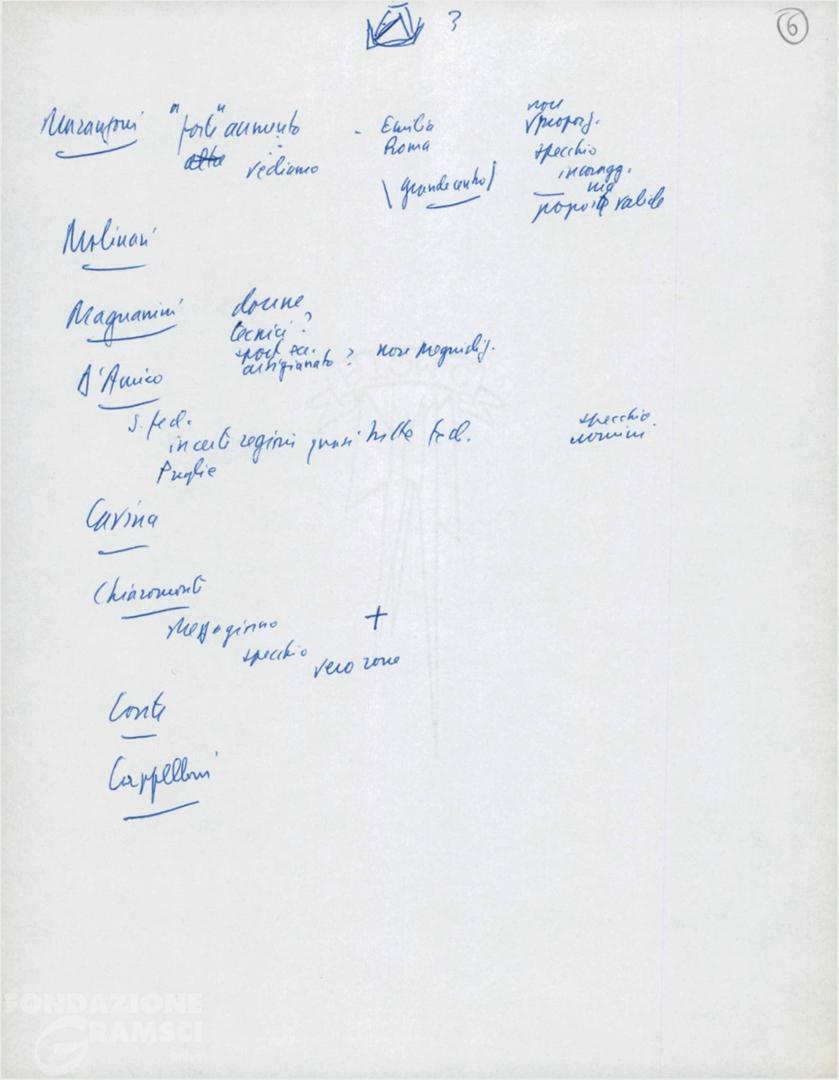 ?
6
Marangoni "forte" aumento - Emilia
Roma
vediamo
(grande centro)
non
proporz.
specchio
incoragg.
ma
proposte valide
Molinari
Magnanini donne
tecnici?
sport ecc.
artigianato? non
D'Amico
S. fed.
incerti regioni quasi tutte fed.
Puglie
specchio
uomini
Cavina
Chiaromonte
Mezzogiorno +
specchio vero zone
Conte
Cappelloni
FONDAZIONE
GRAMSCI